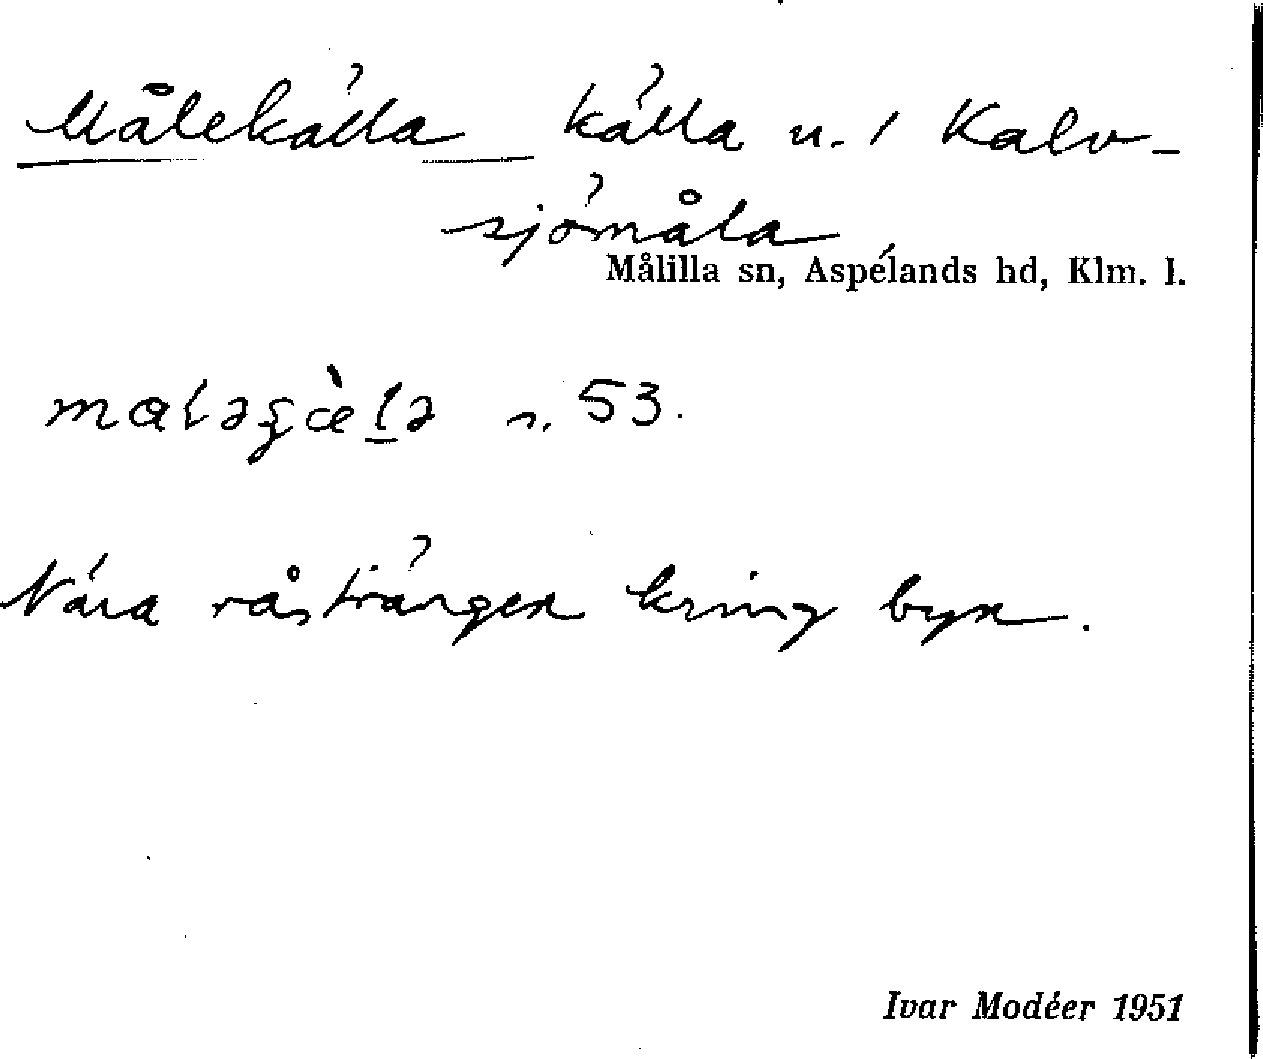 Målekälla källa n. 1 Kalv-
sjömåla
Målilla sn, Aspelands hd, Klm. l.
s. 53.
Nära råsträngen kring byn.
Ivar Modéer 1951